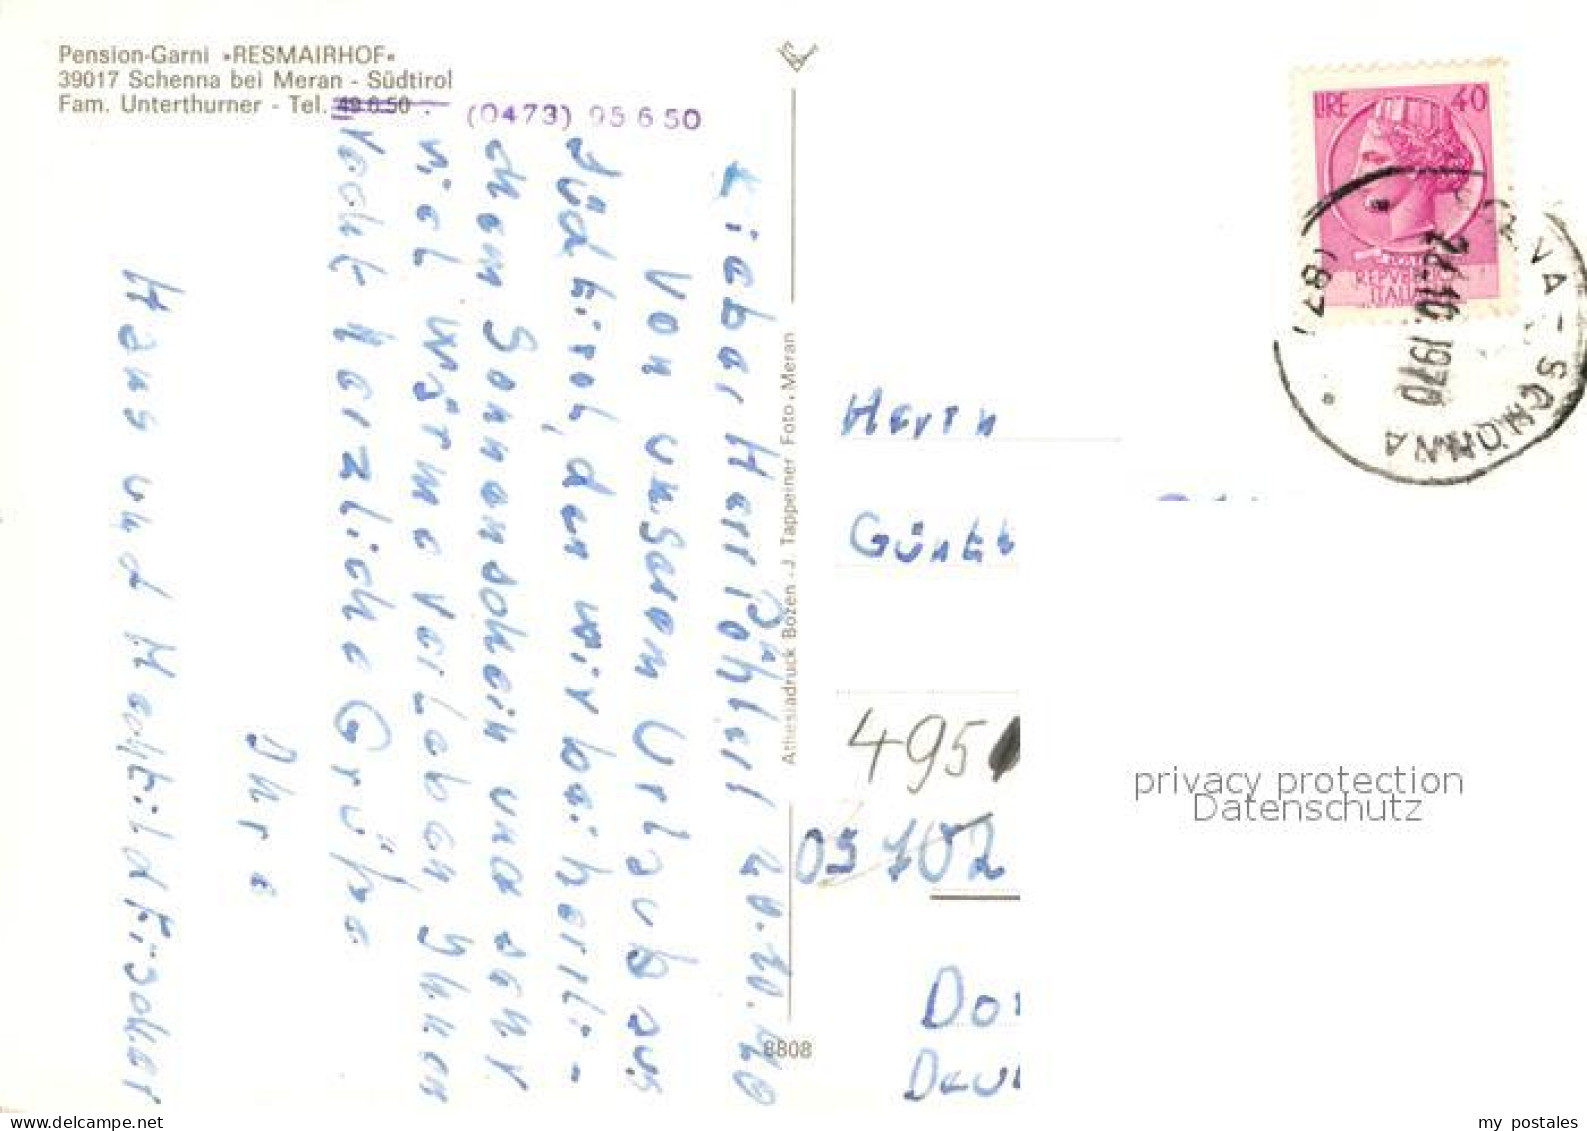 Pension-Garni »RESMAIRHOF«
39017 Schenna bei Meran - Südtirol
Fam. Unterthurner - Tel. 49.6.50 (0473) 95650
20.10.70
Lieber Herr Pöhler!
Von unserem Urlaub aus
Südtirol, den wir bei herrli-
chem Sonnenschein und sehr
viel Wärme verleben, Ihnen
recht herzliche Grüße
Ihre
Hans und Mechthild Fischer
Athesiadruck Bozen - J. Tappeiner Foto, Meran
8808
LIRE 40
POSTE
REPVBBLICA
ITALIANA
SCENA - SCHENNA
21.10.1970
(BZ)
Herrn
Günth
495
Do
Deu
privacy protection
Datenschutz
oldthing.de
my postales